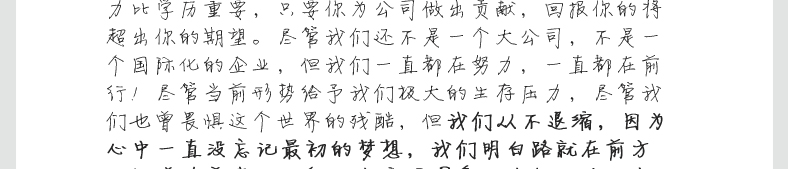 力比学历重要，只要你为公司做出贡献，回报你的将
超出你的期望。尽管我们还不是一个大公司，不是一
个国际化的企业，但我们一直都在努力，一直都在前
行！尽管当前形势给予我们极大的生存压力，尽管我
们也曾畏惧这个世界的残酷，但我们从不退缩，因为
心中一直没忘记最初的梦想，我们明白路就在前方